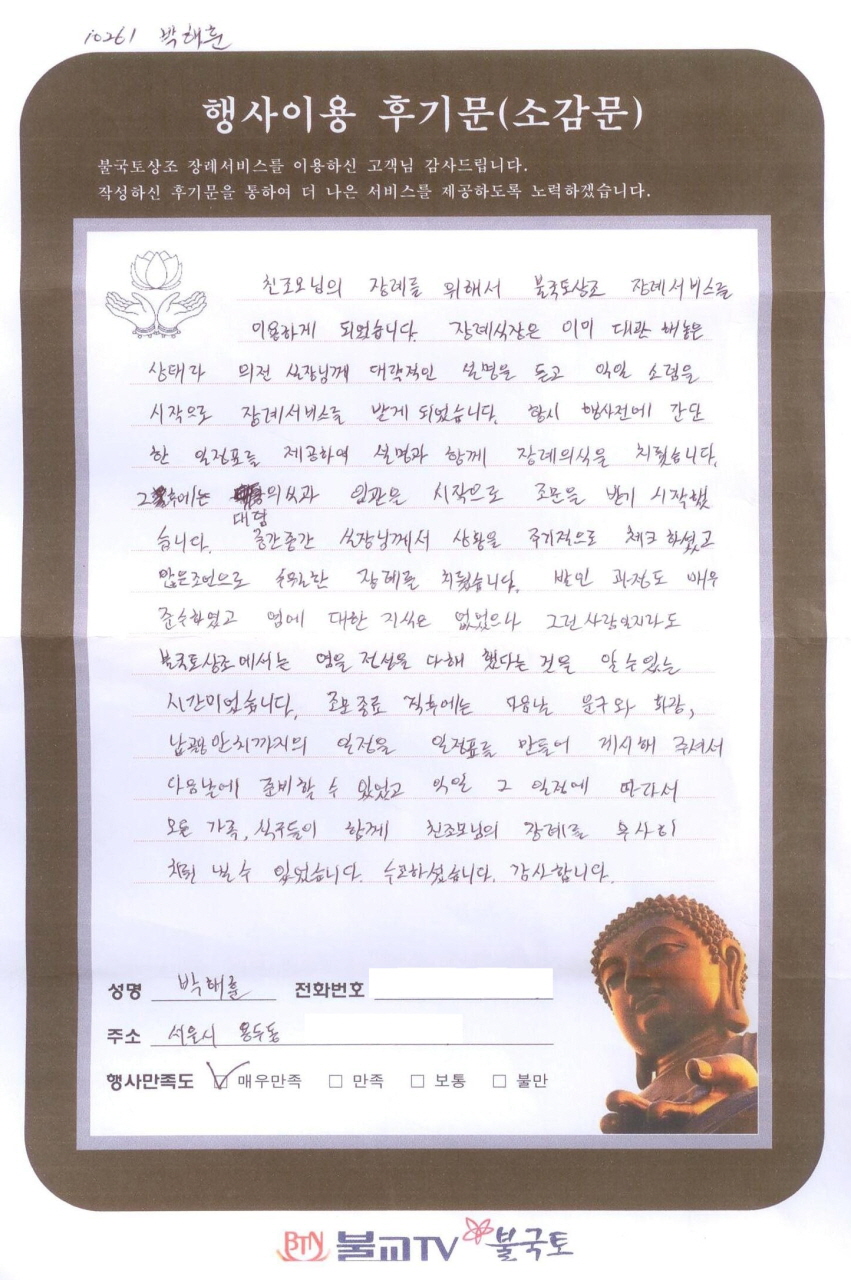 10261 박해훈
행사이용 후기문(소감문)
불국토상조 장례서비스를 이용하신 고객님 감사드립니다.
작성하신 후기문을 통하여 더 나은 서비스를 제공하도록 노력하겠습니다.
친조모님의 장례를 위해서 불국토상조 장례서비스를
이용하게 되었습니다. 장례식장은 이미 대관 해놓은
상태라 의전 실장님께 대략적인 설명을 듣고 익일 소렴을
시작으로 장례서비스를 받게 되었습니다. 항시 행사전에 간단
한 일정표를 제공하여 설명과 함께 장례의식을 치뤘습니다.
그후에는 의식과 입관을 시작으로 조문을 받기 시작했
대담
습니다. 중간중간 실장님께서 상황을 주기적으로 체크 하셨고
많은조언으로 수월한 장례를 치뤘습니다. 발인 과정도 매우
준수하였고 염에 대한 지식은 없었으나 그런 사람일지라도
불국토상조에서는 염을 전심을 다해 했다는 것을 알 수 있는
시간이었습니다. 조문종료 직후에는 다음날 운구와 화장,
납골안치까지의 일정을 일정표로 만들어 제시해 주셔서
다음날에 준비할 수 있었고 익일 그 일정에 따라서
모든 가족, 식구들이 함께 친조모님의 장례를 무사히
치뤄 낼 수 있었습니다. 수고하셨습니다. 감사합니다.
성명 박해훈 전화번호
주소 서울시 용두동
행사만족도 ☑ 매우만족 □ 만족 □ 보통 □ 불만
BTN 불교TV 불국토